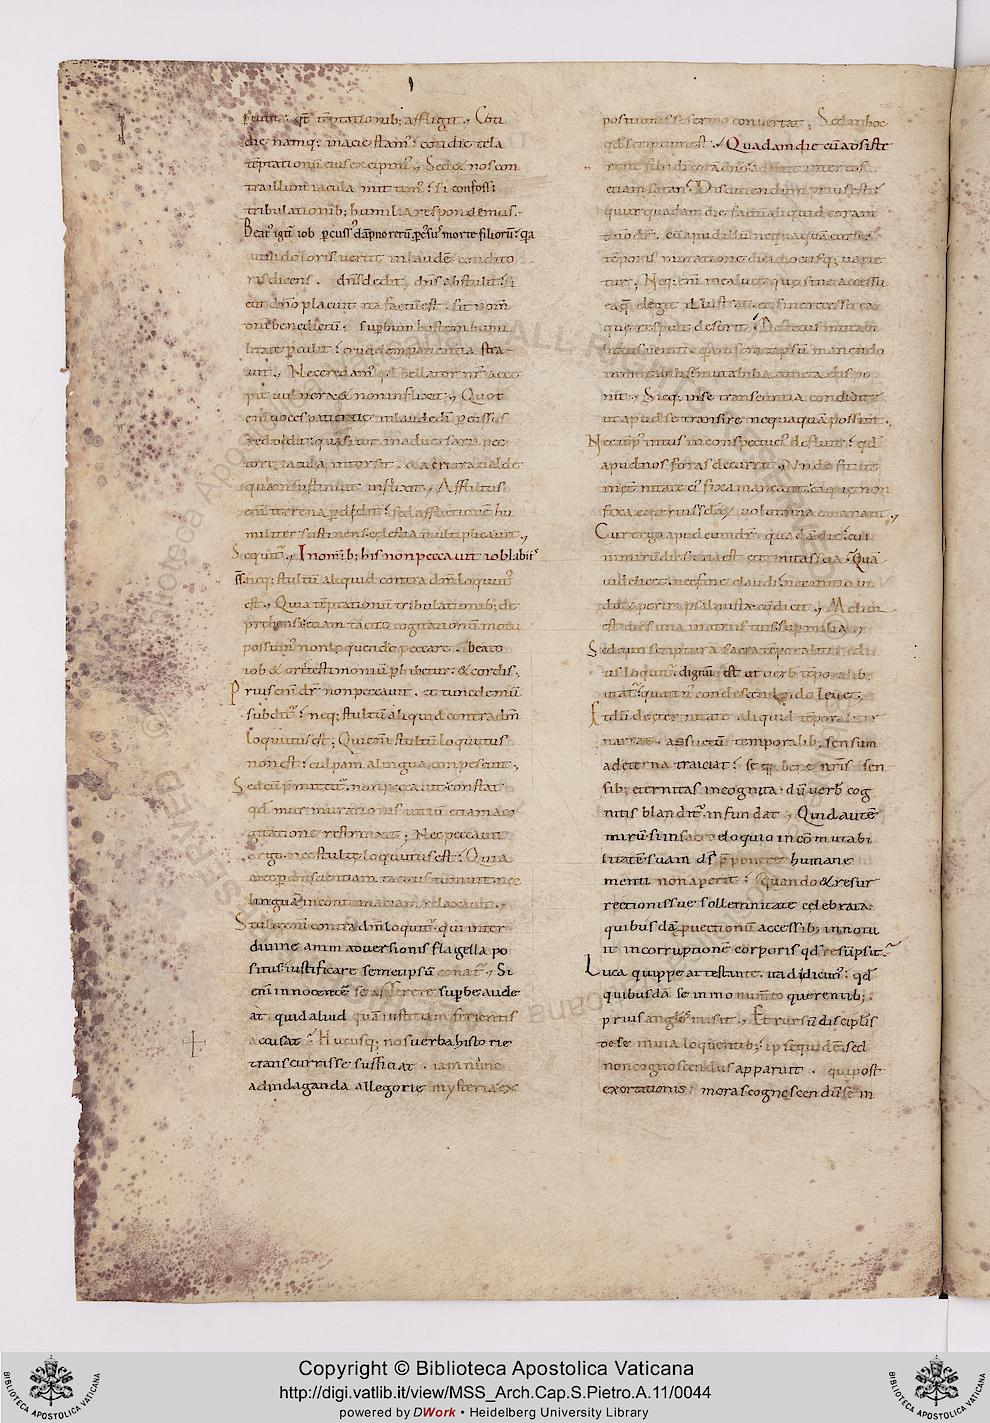 die namq; inacie stam᷒. cotidie tela
tēptationū eius excipim᷒. Sed & nos con
tra illum iacula mittim᷒. si confossi
tribulationib; humilia respondemus.
Beat᷒ igit̄ iob ꝑcuss᷒ dāpno rerū, ꝑcus᷒ morte filiorū. q̄a
uim doloris uertit inlaudē condito
ris dicens. dn̄s dedit dn̄s abstulit. si
cut dn̄o placuit ita factū est. sit nom̄
dn̄i benedictū. suꝑbum hostem humi
litate ꝑculit. crudelem patientia stra
uit. Nec credam᷒ qd̄ bellator nr̄ acce
pit uulnera & non inflixit. Quot
eni᷒ uoces patientie inlaudē dī ꝑcussus
reddidit. quasi tot inaduersarii pec
tore iacula intorsit. & acriora ualde
quam sustinuit inflixit. Afflictus
eni᷒ terrena ꝑdidit. sed afflictionē hu
militer sustinens. celestia multiplicauit.
Sequit᷒. In omīb; his non peccauit iob labiis
suis. neq; stultū aliquid contra dm̄ loquut᷒
est. Quia tēptationū tribulationib; de
prehensi. etiam tacito cogitationū motu
possum᷒ non loquendo peccare. beato
iob & oris testimoniū ꝑhibetur & cordis.
Prius eni᷒ dr̄ non peccauit. et tunc demū
subdit᷒. neq; stultū aliquid contra dm̄
loquutus est. Qui eni᷒ stultū loquutus
non est. culpam alingua compescuit.
Sed cū p̄mittit᷒. non peccauit. constat
qd̄ murmurationis uitiū etiam aco
gitatione restrinxit. Nec peccauit
ergo. nec stulte loquutus est. Quia
nec ꝑ conscientiam tacitus tumuit. nec
linguā incontumaciam relaxauit.
Stulte eni᷒ contra dm̄ loquit᷒. qui inter
diuine animaduersionis flagella po
situs. iustificare semetipsū conat᷒. Si
eni᷒ innocentē se asserere suꝑbe aude
at. quid aliud quā iustitiam ferientis
accusat. Hucusq; nos uerba historie
transcurrisse sufficiat. iam nunc
ad indaganda allegorie mysteria ex
positionis se sermo conuertat. Sed an hoc
qd̄ scriptum est. Quadam die cū adsiste
rent filii dī coram dn̄o. adfuit inter eos
etiam satan. Discutiendum prius est.
cur quadam die factū aliquid coram
dn̄o dr̄. cū apud illū nequaquā cursus
tēporis mutatione diei noctisq; uarie
tur. Neq; eni᷒ inea luce que sine accessu
ea q̄ elegit illustrat. et sine recessu ea
que respuit deserit. defectus mutabi
litatis uenit. quia in semetipsū manendo
inmutabilis. mutabilia cuncta dispo
nit. Sicq; in se transeuntia condidit.
ut apud se transire nequaquā possint.
Nec tēp᷒ intus in conspectu ei᷒ defluit. qd̄
apud nos foras decurrit. Unde fit ut
in eternitate ei᷒ fixa maneant. ea que non
fixa exterius sclo℞ volumina emanant.
Cur ergo apud eum dr̄ quadā die. cui
nimirū dies una est eternitas sua. Quā
uidelicet. nec fine claudi. nec initio ui
dit aperiri psalmista. cū dicit. Melior
est dies una inatriis tuis super milia.
Sed cum scriptura sacra tēporaliter edi
tis loquit᷒. dignū est ut uerb᷒ tēporalib;
utat᷒. quatin᷒ condescendendo leuet.
Et dū de eternitate aliquid tēporaliter
narrat. assuetū temporalib; sensum
ad eterna traiciat. seq; bene nr̄is sen
sib; eternitas incognita. dū uerb᷒ cog
nitis blandit᷒. infundat. Quid autē
mirū si in sacro eloquio incōmutabi
litatē suam ds̄ p̄ponere humane
menti non aperit. quando & resur
rectionis sue sollemnitate celebrata.
quibusdā ꝓuectionū accessib; innotu
it incorruptionē corporis qd̄ resūpsit.
Luca quippe attestante. ita didicim᷒. qd̄
quibusdā se in monumto querentib;.
prius anglos misit. Et rursū discipl̄is
de se in uia loquentib;. ipse quidē sed
non cognoscendus apparuit. qui post
exortationis. moras cognoscendū se in
Copyright © Biblioteca Apostolica Vaticana
http://digi.vatlib.it/view/MSS_Arch.Cap.S.Pietro.A.11/0044
powered by DWork • Heidelberg University Library
BIBLIOTECA APOSTOLICA VATICANA
BIBLIOTECA APOSTOLICA VATICANA